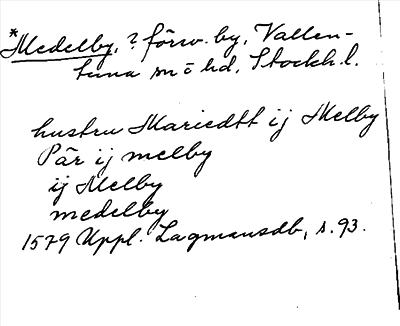 *Medelby, ? förw. by, Vallen-
tuna sn o hd, Stockh.l.
hustru Mariedtt ij Melby
Pär ij melby
ij Melby
medelby
1579 Uppl. Lagmansdb, s. 93.